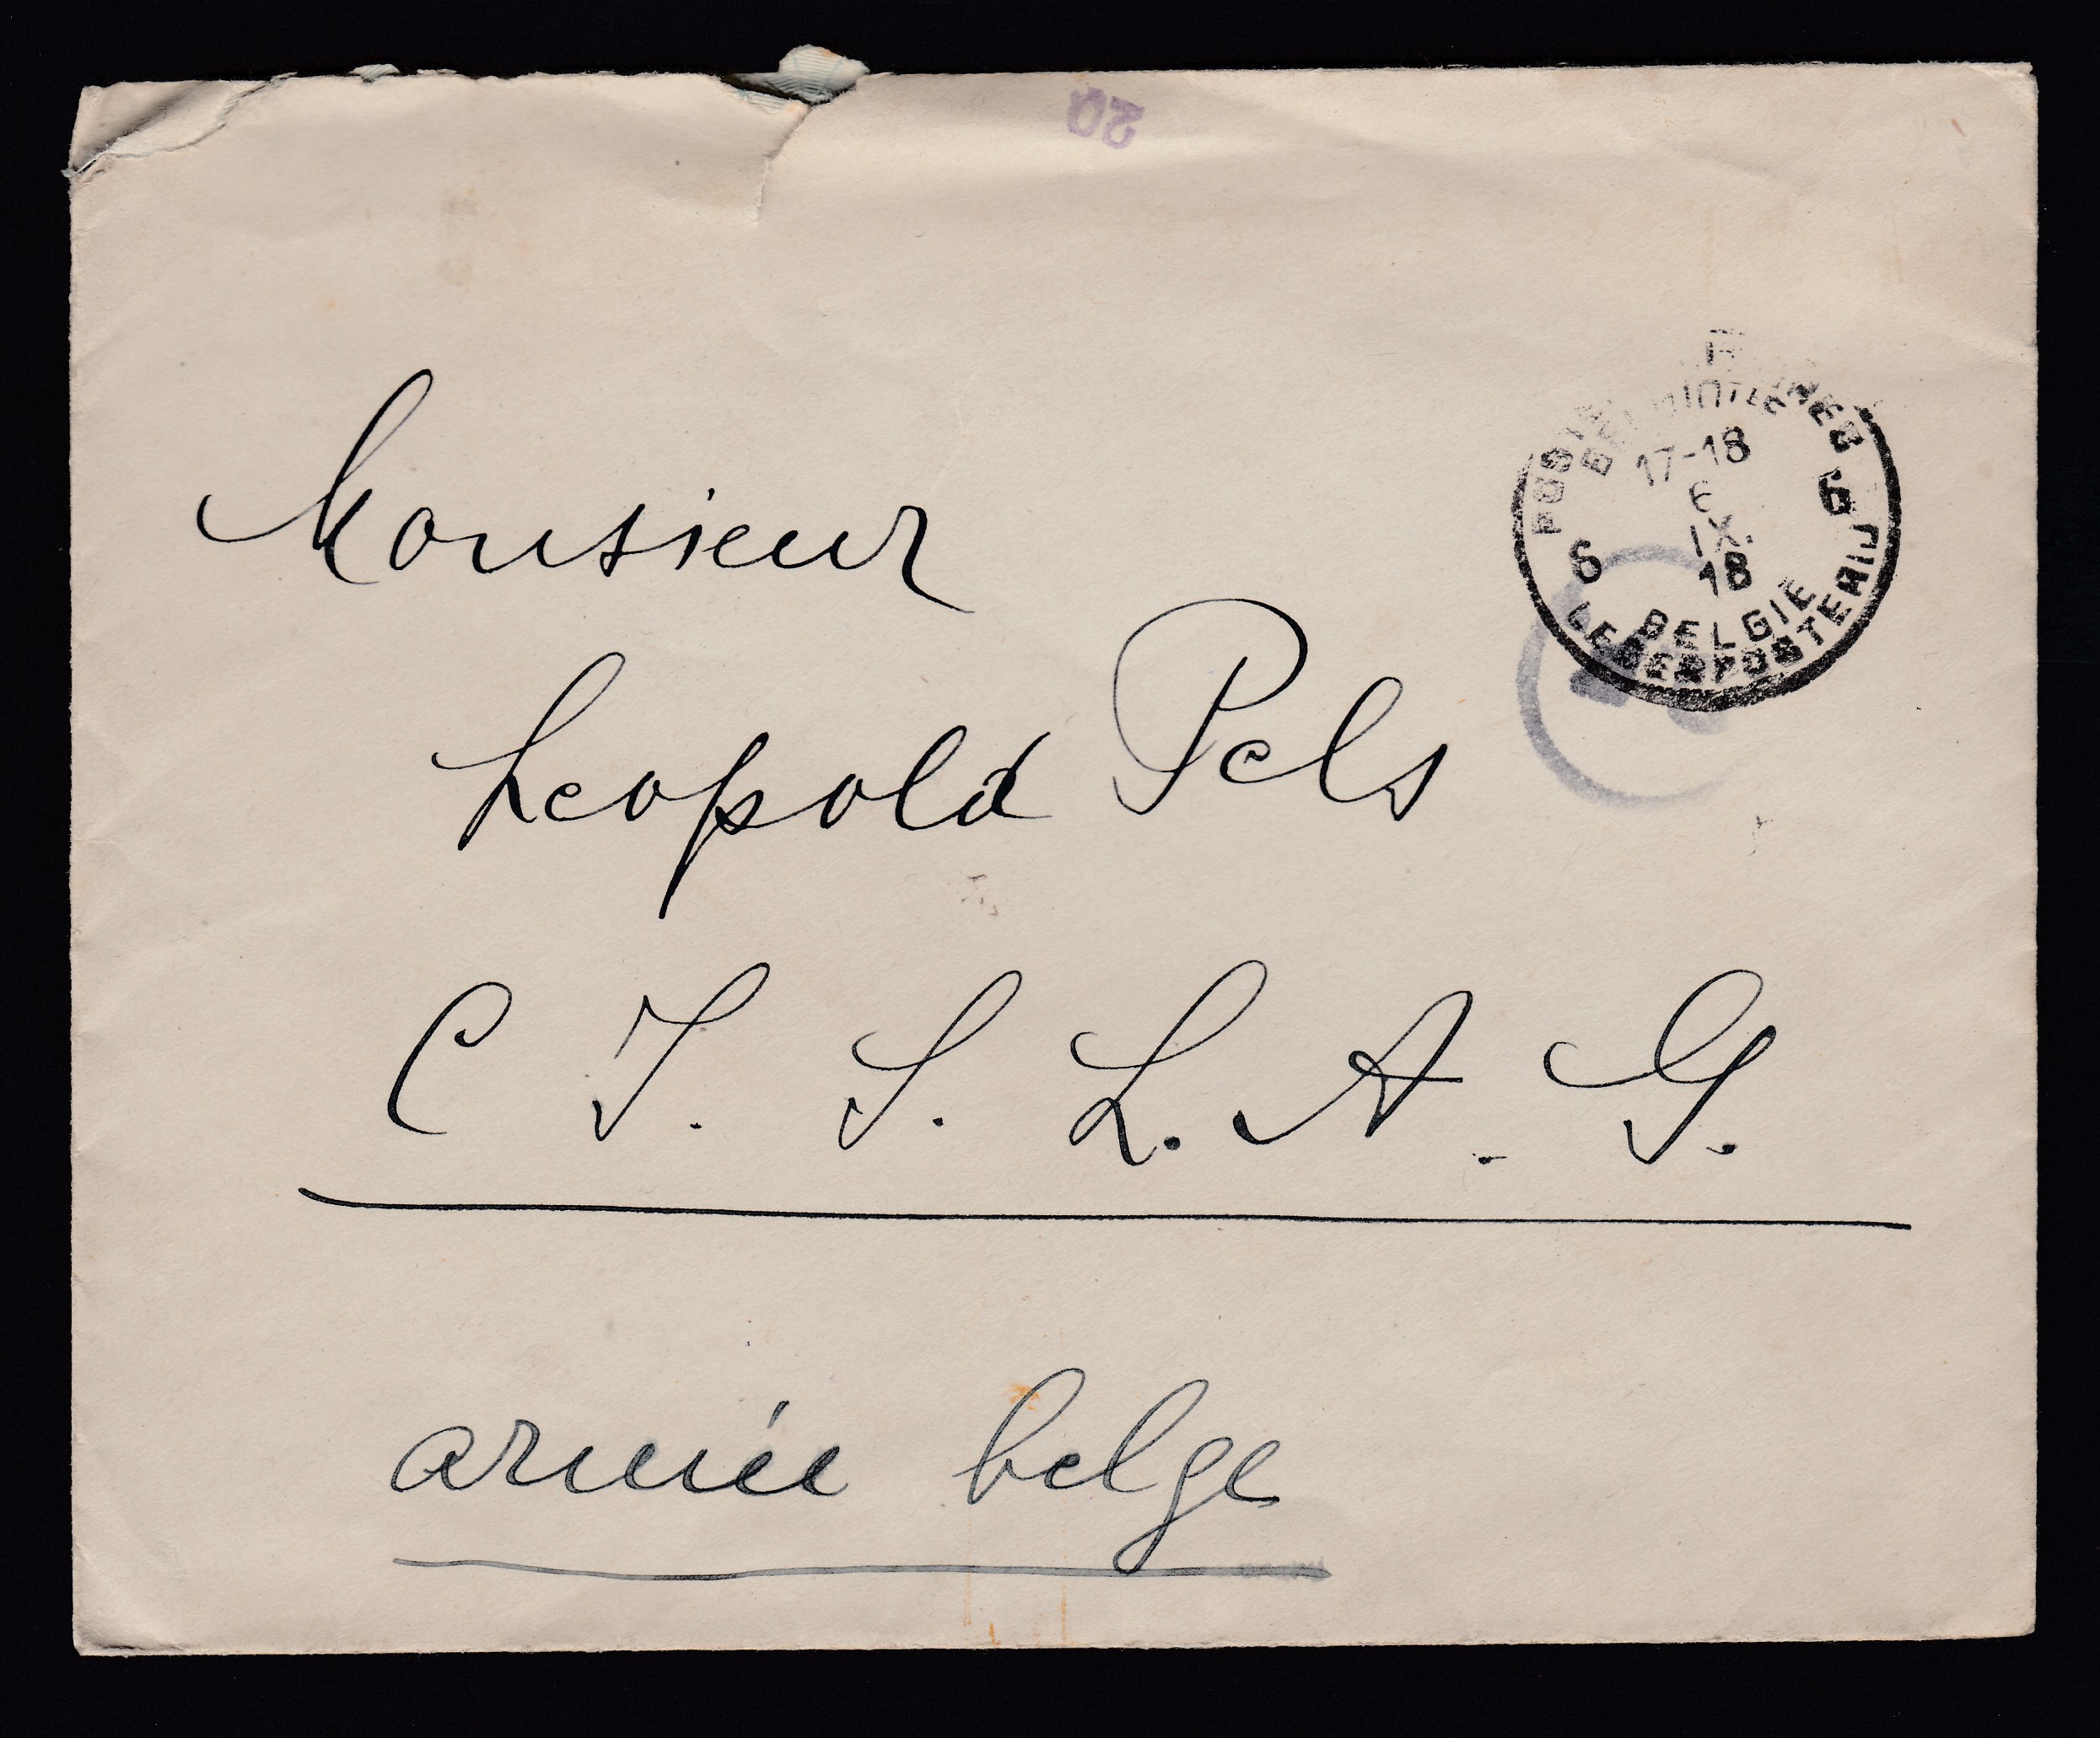 20
POSTES MILITAIRES
BELGIQUE
17-18
6
IX.
18
6 6
BELGIE
LEGERPOSTERIJ
Monsieur
Leopold Pels
C T. S. L. A. G.
armée belge